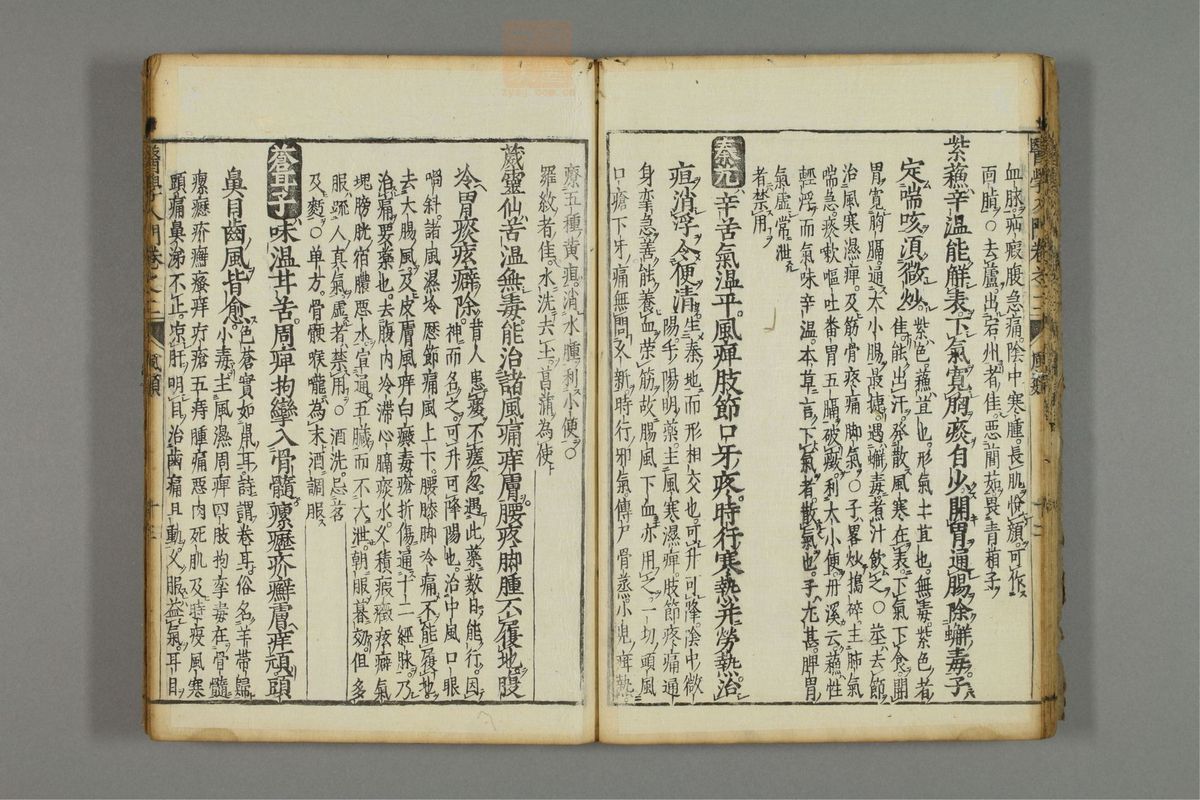 血脉。疝瘕腹急痛陰中寒腫。長肌悅顏。可作
兩臟。○去蘆出宕州者佳。惡䕡茹畏青葙子
紫蘇辛温能解表。下氣寬胸痰自少開胃通腸除蠏毒子
定喘咳須微炒。紫色蘇宜也。形氣上宜也。無毒紫色者
佳能出汗。發散風寒在表。下氣下食開
胃寬胸膈。通大小腸最捷。遇蠏毒者汁飲之○莖去節
治風寒濕痺。及筋骨疼痛脚氣。○子畧炒搗碎。主肺氣
喘急。痰嗽嘔吐番胃五膈。破癥。利大小便丹溪云蘇性
輕浮而氣味辛温。本草言下氣者。散氣也。子尤甚。脾胃
氣虛常泄
者禁用
秦艽辛苦氣温平風痺肢節口牙疼。時行寒熱并勞熱治
疸消浮令便清。生秦地而形相交也。可升可降。陰中微
陽。手陽明藥。主風寒濕痺。肢節疼痛通
身攣急。善能養血榮筋。故腸風下血亦用之。一切頭風
口瘡下牙痛無問又新。時行邪氣傳尸骨蒸小兒疳熱
療五種黃疸。消水腫利小便。○
羅紋者佳。水洗去土。菖蒲為使
葳靈仙苦温無毒能治諸風痛痒膚。腰疼脚腫不履地腹
冷胃痰痃癖除。昔人患痿不瘥。忽遇此藥數日能行。因
神而名之。可升可降陽也。治中風口眼
喎斜。諸風濕冷歷節痛風上下。腰膝脚冷痛不能履地
去大腸風及皮膚風痒白癜毒瘡折傷。通十二經脉。乃
治痛要藥也。去腹內冷滯心膈痰水。又積瘕癥痃癖氣
塊膀胱宿膿惡水宣通五臟。而不大泄。朝服暮効。但多
服踈人真氣。虛者禁用。○酒洗。忌茗
及麪○单方。骨骾喉嚨為末酒調服
蒼耳子味温甘苦。周痺拘攣入骨髓。瘰癧疥癬膚痒頑。頭
鼻目齒風皆愈。色蒼實如鼠耳。詩謂卷耳。俗名羊帶歸
小毒。主風濕周痺四肢拘孿毒在骨髓
瘰癧疥癬瘙痒疔瘡五痔腫痛惡肉死肌及時疫風寒
頭痛鼻涕不止。凉肝明目。治齒痛且動。又服益氣。耳目
醫學入門卷之二
風類
十二
醫學入門卷之二
風類